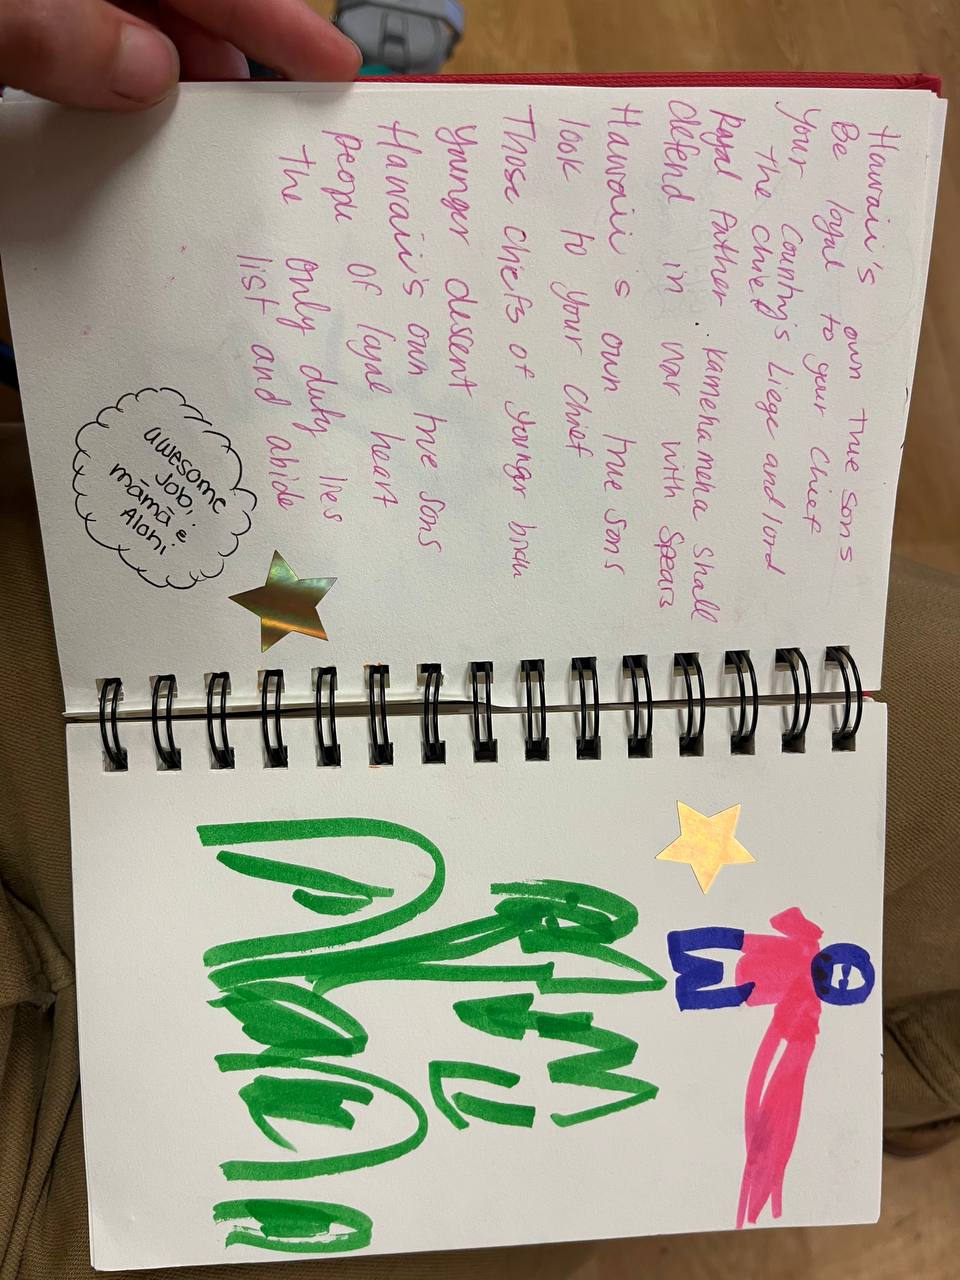 Hawaii's own true sons
Be loyal to your chief
Your country's Liege and lord
the chief
Royal Father . Kamehameha shall
defend in war with spears
Hawaii's own true sons
look to your chief
Those chiefs of younger birth
younger descent
Hawaii's own true sons
people of loyal heart
The only duty lies
list and abide
awesome
Job,
māmā e
Alohi